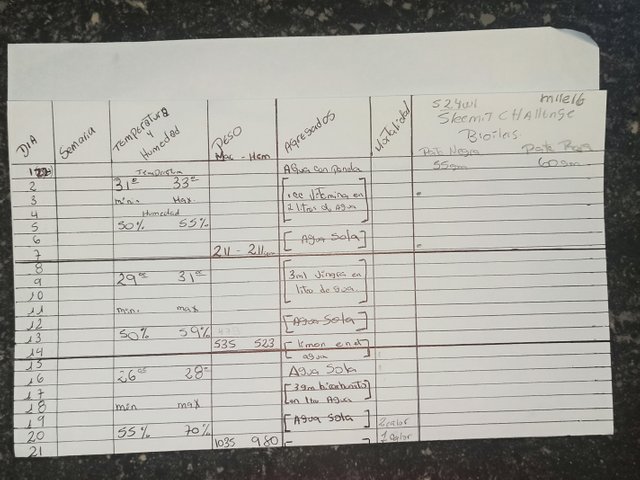 DIA Semana Temperatura y Humedad PESO Mac - Hem Agregados Mortalidad
S24W1 milei6
Steemit CHAllenge
Pata Negra
55gm 60gm
1 Temperatura Agua con panela
2 31° 33°
3 min. Max. 1cc vitamina en
4 Humedad 2 litros de Agua
5 50% 55%
6 Agua Sola
7 211 - 211gm
8
9 29°c 31°c 3ml
10 litro de agua
11 min. max
12 Agua Sola
13 50% 59%
14 535 523 limon en el agua
15 Agua Sola
16 26°c 28°
17 3gm bicarbonato
18 min max en 1 ltro Agua
19 Agua Sola 2 calor
20 55% 70% 1 calor
21 1035 980